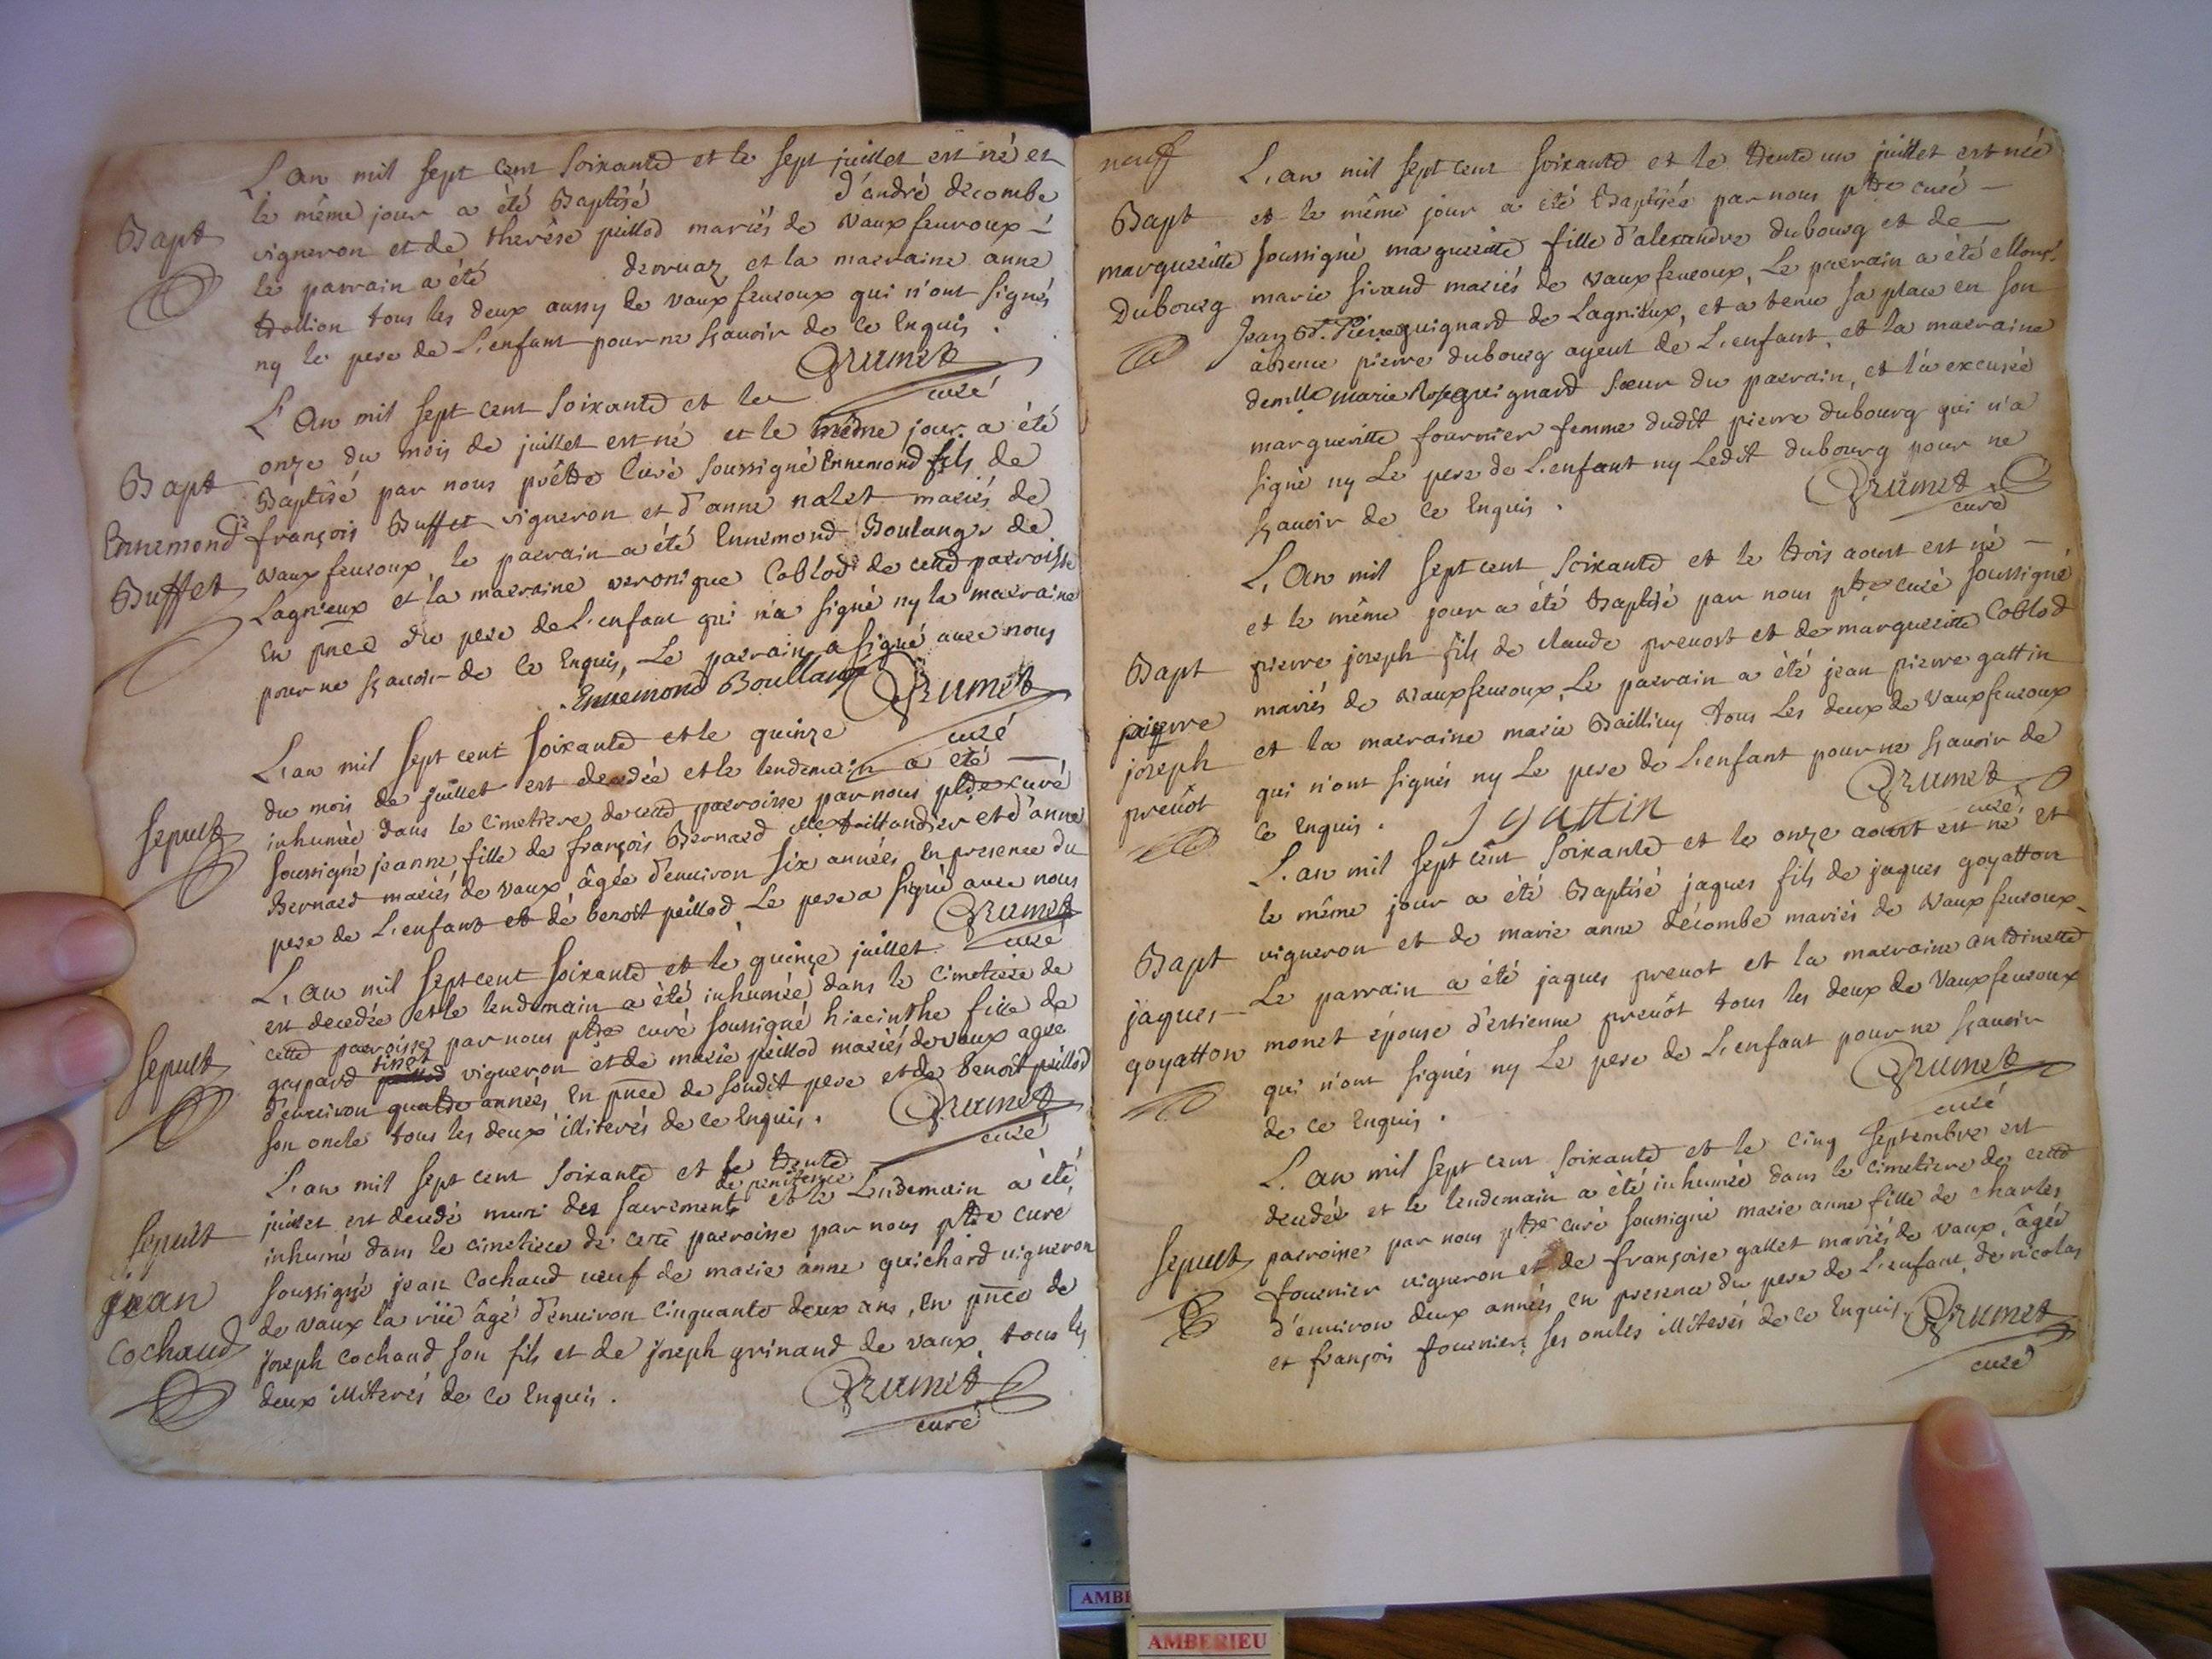 L'an mil sept cent soixante et le sept juillet est né et
le même jour a été Baptisé d'andré decombe
Bapt
vigneron et de therêse peillod mariés de vaux fevroux -
le parrain a été derruaz et la marraine anne
trollion tous les deux aussy de vaux fevroux qui n'ont signés
ny le pere de L'enfant pour ne sçavoir de ce Enquis .
Grumet
curé
L'an mil sept cent soixante et le
onze du mois de juillet est né et le même jour a été
Bapt
Baptisé par nous prêtre Curé soussigné Ennemond fils de
Ennemond
françois Buffet vigneron et d'anne nalet mariés de
Buffet
vaux fevroux, le parrain a été Ennemond Boulanger de
Lagnieux et la marraine veronique Coblod de cette parroisse
En pnce du pere de L'enfant qui n'a signé ny la marraine
pour ne sçavoir de ce Enquis, Le parrain a signé avec nous
Ennemond Boullanger Grumet
curé
L'an mil sept cent soixante et le quinze
du mois de juillet est decedée et le lendemain a été
Sepult
inhumée dans le cimetiere de cette parroisse par nous ptre curé
soussigné jeanne fille de françois Bernard taillandier et d'anne
Bernard mariés de vaux, âgée d'environ six années, En presence du
pere de L'enfant et de benoit peillod, Le pere a signé avec nous
Grumet
curé
L'an mil sept cent soixante et le quinze juillet
est decedée et le lendemain a été inhumée dans le cimetiere de
Sepult
cette parroisse par nous ptre curé soussigné hiacinthe fille de
gaspard tissot vigneron et de marie peillod mariés de vaux agée
d'environ quatre années, En pnce de soudit pere et de benoit peillod
son oncle tous les deux illiterés de ce Enquis .
Grumet
curé
L'an mil sept cent soixante et le trente
de penitence
juillet est decedé muni des sacrements et le Lendemain a été
Sepult
inhumé dans le cimetiere de cette parroisse par nous ptre curé
jean
soussigné jean Cochaud veuf de marie anne guichard vigneron
Cochaud
de vaux la rüe âgé d'environ cinquante deux ans, En pnce de
joseph Cochaud son fils et de joseph grinand de vaux, tous les
deux illiterés de ce Enquis .
Grumet
curé
neuf
L'an mil sept cent soixante et le trente un juillet est née
Bapt
et le même jour a été Baptisée par nous ptre curé -
margueritte
soussigné margueritte fille d'alexandre dubourg et de -
Dubourg
marie sirand mariés de vaux fevroux, Le parrain a été
Jean Bt. Pierre guignard de Lagnieux, et a tenu sa place en son
absence pierre dubourg ayeul de L'enfant, et la marraine
demlle marie Rose guignard soeur du parrain, et l'a excusée
margueritte fournier femme dudit pierre dubourg qui n'a
signé ny Le pere de L'enfant ny Ledit dubourg pour ne
sçavoir de ce Enquis .
Grumet
curé
L'an mil sept cent soixante et le trois aoust est né -
et le même jour a été Baptisé par nous ptre curé soussigné
Bapt
pierre joseph fils de claude prevost et de margueritte Coblod
pierre
mariés de vaux fevroux, Le parrain a été jean pierre gattin
joseph
et la marraine marie Bailliuy tous Les deux de vaux fevroux
prevôt
qui n'ont signés ny Le pere de L'enfant pour ne sçavoir de
ce Enquis . J gattin
Grumet
curé
L'an mil sept cent soixante et le onze aoust est né et
le même jour a été Baptisé jaques fils de jaques goyatton
Bapt
vigneron et de marie anne decombe mariés de vaux fevroux -
jaques
Le parrain a été jaques prevot et la marraine antoinette
goyatton
monet épouse d'estienne prevôt tous les deux de vaux fevroux
qui n'ont signés ny Le pere de L'enfant pour ne sçavoir
de ce Enquis .
Grumet
curé
L'an mil sept cent soixante et le cinq septembre est
decedée et le lendemain a été inhumée dans le cimetiere de cette
Sepult
parroisse par nous ptre curé soussigné marie anne fille de charles
fournier vigneron et de françoise gallet mariés de vaux, âgée
d'environ deux années en presence du pere de L'enfant, de nicolas
et françois fournier, ses oncles illiterés de ce Enquis .
Grumet
curé
AMBE
AMBERIEU